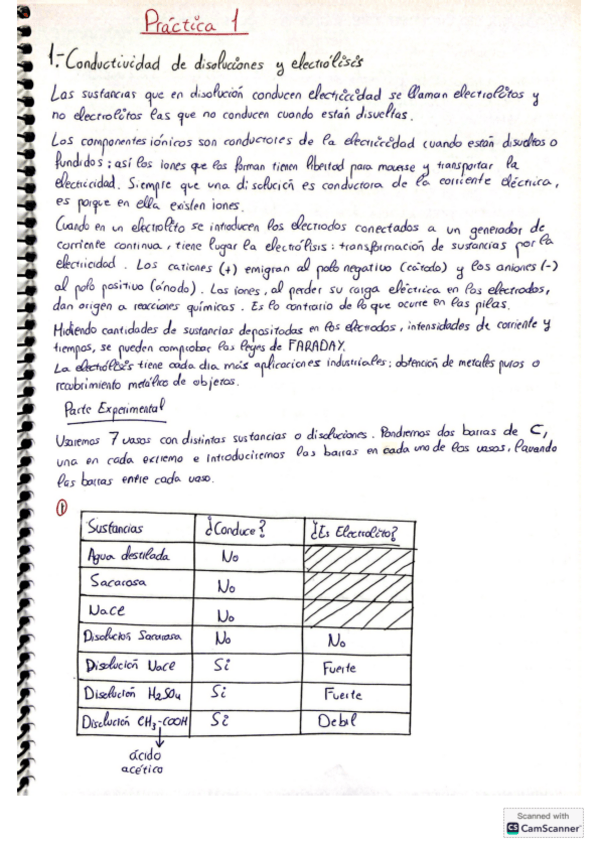 Práctica 1
1.- Conductividad de disoluciones y electrólisis
Las sustancias que en disolución conducen electricidad se llaman electrolitos y
no electrolitos las que no conducen cuando están disueltas.
Los componentes iónicos son conductores de la electricidad cuando están disueltos o
fundidos; así los iones que los forman tienen libertad para moverse y transportar la
electricidad. Siempre que una disolución es conductora de la corriente eléctrica,
es porque en ella existen iones.
Cuando en un electrolito se introducen los electrodos conectados a un generador de
corriente continua, tiene lugar la electrólisis: transformación de sustancias por la
electricidad. Los cationes (+) emigran al polo negativo (cátodo) y los aniones (-)
al polo positivo (ánodo). Los iones, al perder su carga eléctrica en los electrodos,
dan origen a reacciones químicas. Es lo contrario de lo que ocurre en las pilas.
Midiendo cantidades de sustancias depositadas en los electrodos, intensidades de corriente y
tiempos, se pueden comprobar las leyes de FARADAY.
La electrólisis tiene cada día más aplicaciones industriales: obtención de metales puros o
recubrimiento metálico de objetos.
Parte Experimental
Usaremos 7 vasos con distintas sustancias o disoluciones. Pondremos dos barras de C,
una en cada extremo e introduciremos las barras en cada uno de los vasos, lavando
las barras entre cada vaso.
①
Sustancias ¿Conduce? ¿Es Electrolito?
Agua destilada No
Sacarosa No
Nace No
Disolución Sacarosa No No
Disolución Nace Si Fuerte
Disolución H2SO4 Si Fuerte
Disolución CH3-COOH Si Débil
ácido
acético
Scanned with
CS CamScanner